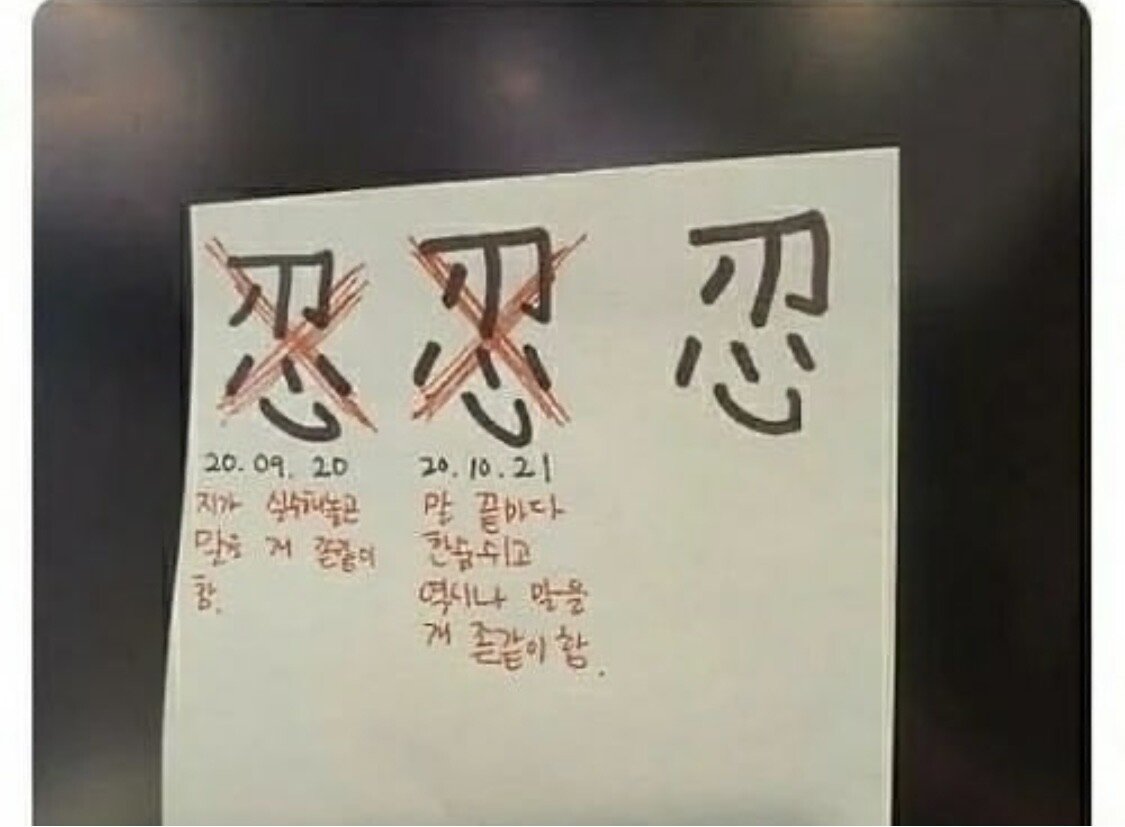 忍 忍 忍
20.09.20
지가 실수해놓곤
말을 개 존같이
함.
20.10.21
말 끝마다
한숨쉬고
역시나 말을
개 존같이 함.